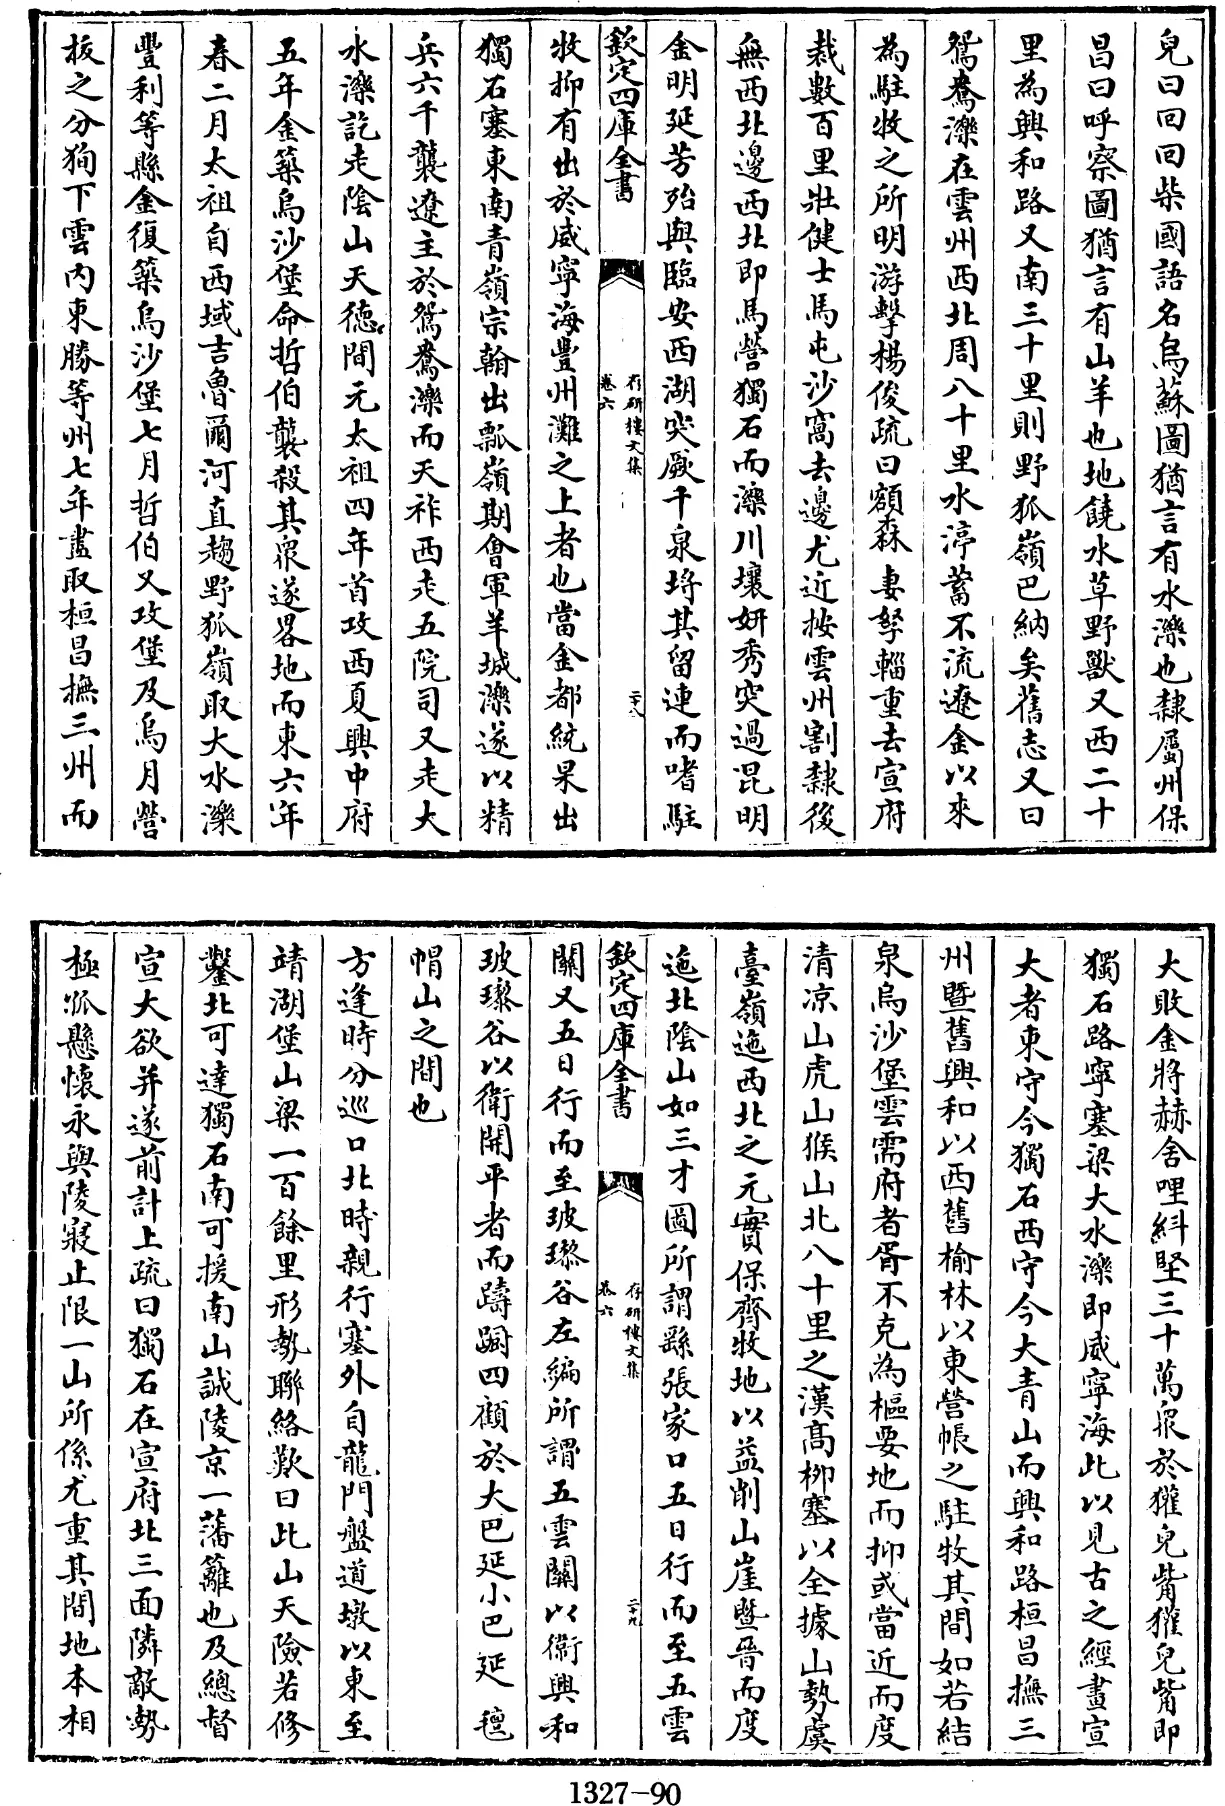 兒曰回回柴國語名烏蘇圖猶言有水濼也隸屬州保
昌曰呼察圖猶言有山羊也地饒水草野獸又西二十
里為興和路又南三十里則野狐嶺巴納矣舊志又曰
鴛鴦濼在雲州西北周八十里水渟蓄不流遼金以來
為駐牧之所明游擊楊俊疏曰額森妻孥輜重去宣府
裁數百里壯健士馬屯沙窩去邊尤近按雲州割隸後
無西北邊西北即馬營獨石而濼川壤妍秀突過昆明
金明延芳殆與臨安西湖突厥千泉埒其留連而嗜駐
欽定四庫全書
存研樓文集
卷六
二十八
牧抑有出於威寧海豐州灘之上者也當金都統杲出
獨石塞東南青嶺宗翰出瓢嶺期會軍羊城濼遂以精
兵六千襲遼主於鴛鴦濼而天祚西走五院司又走大
水濼訖走陰山天德間元太祖四年首攻西夏興中府
五年金築烏沙堡命哲伯襲殺其衆遂畧地而東六年
春二月太祖自西域吉魯爾河直趨野狐嶺取大水濼
豐利等縣金復築烏沙堡七月哲伯又攻堡及烏月營
拔之分狥下雲內東勝等州七年盡取桓昌撫三州而
大敗金將赫舍哩糾堅三十萬衆於獾兒觜獾兒觜即
獨石路寧塞梁大水濼即威寧海此以見古之經畫宣
大者東守今獨石西守今大青山而興和路桓昌撫三
州暨舊興和以西舊榆林以東營帳之駐牧其間如若結
泉烏沙堡雲需府者胥不克為樞要地而抑或當近而度
清凉山虎山猴山北八十里之漢髙柳塞以全據山勢虞
臺嶺迤西北之元實保齊牧地以益削山崖暨晉而度
迤北陰山如三才圖所謂繇張家口五日行而至五雲
欽定四庫全書
存研樓文集
卷六
二十九
關又五日行而至玻瓈谷左編所謂五雲關以衛興和
玻瓈谷以衛開平者而躊躕四顧於大巴延小巴延氊
帽山之間也
方逢時分巡口北時親行塞外自龍門盤道墩以東至
靖湖堡山梁一百餘里形勢聯絡歎曰此山天險若修
鑿北可達獨石南可援南山誠陵京一藩籬也及總督
宣大欲并遂前計上疏曰獨石在宣府北三面隣敵勢
極孤懸懷永與陵寢止限一山所係尤重其間地本相
1327-90